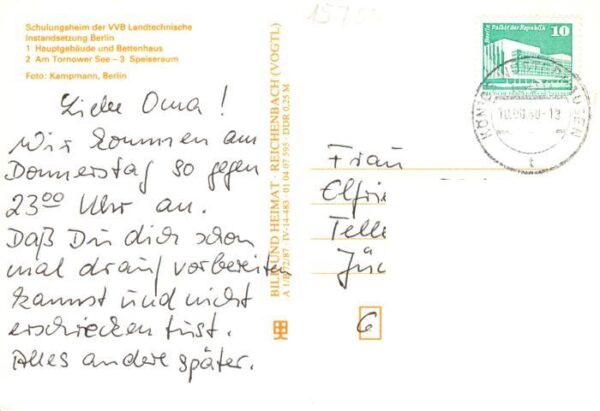 Schulungsheim der VVB Landtechnische
Instandsetzung Berlin
1 Hauptgebäude und Bettenhaus
2 Am Tornower See – 3 Speiseraum
Foto: Kampmann, Berlin
Liebe Oma!
Wir kommen am
Donnerstag so gegen
23⁰⁰ Uhr an.
Daß Du dich schon
mal drauf vorbereiten
kannst und nicht
erschrecken tust.
Alles andere später.
BILD UND HEIMAT · REICHENBACH (VOGTL)
A 1/B 72/87 IV-14-483 · 01 04 07 595 · DDR 0,25 M
Berlin Palast der Republik
10
DDR
KÖNIGS WUSTERHAUSEN
Frau
Elfrie
Telle
Jüc
6